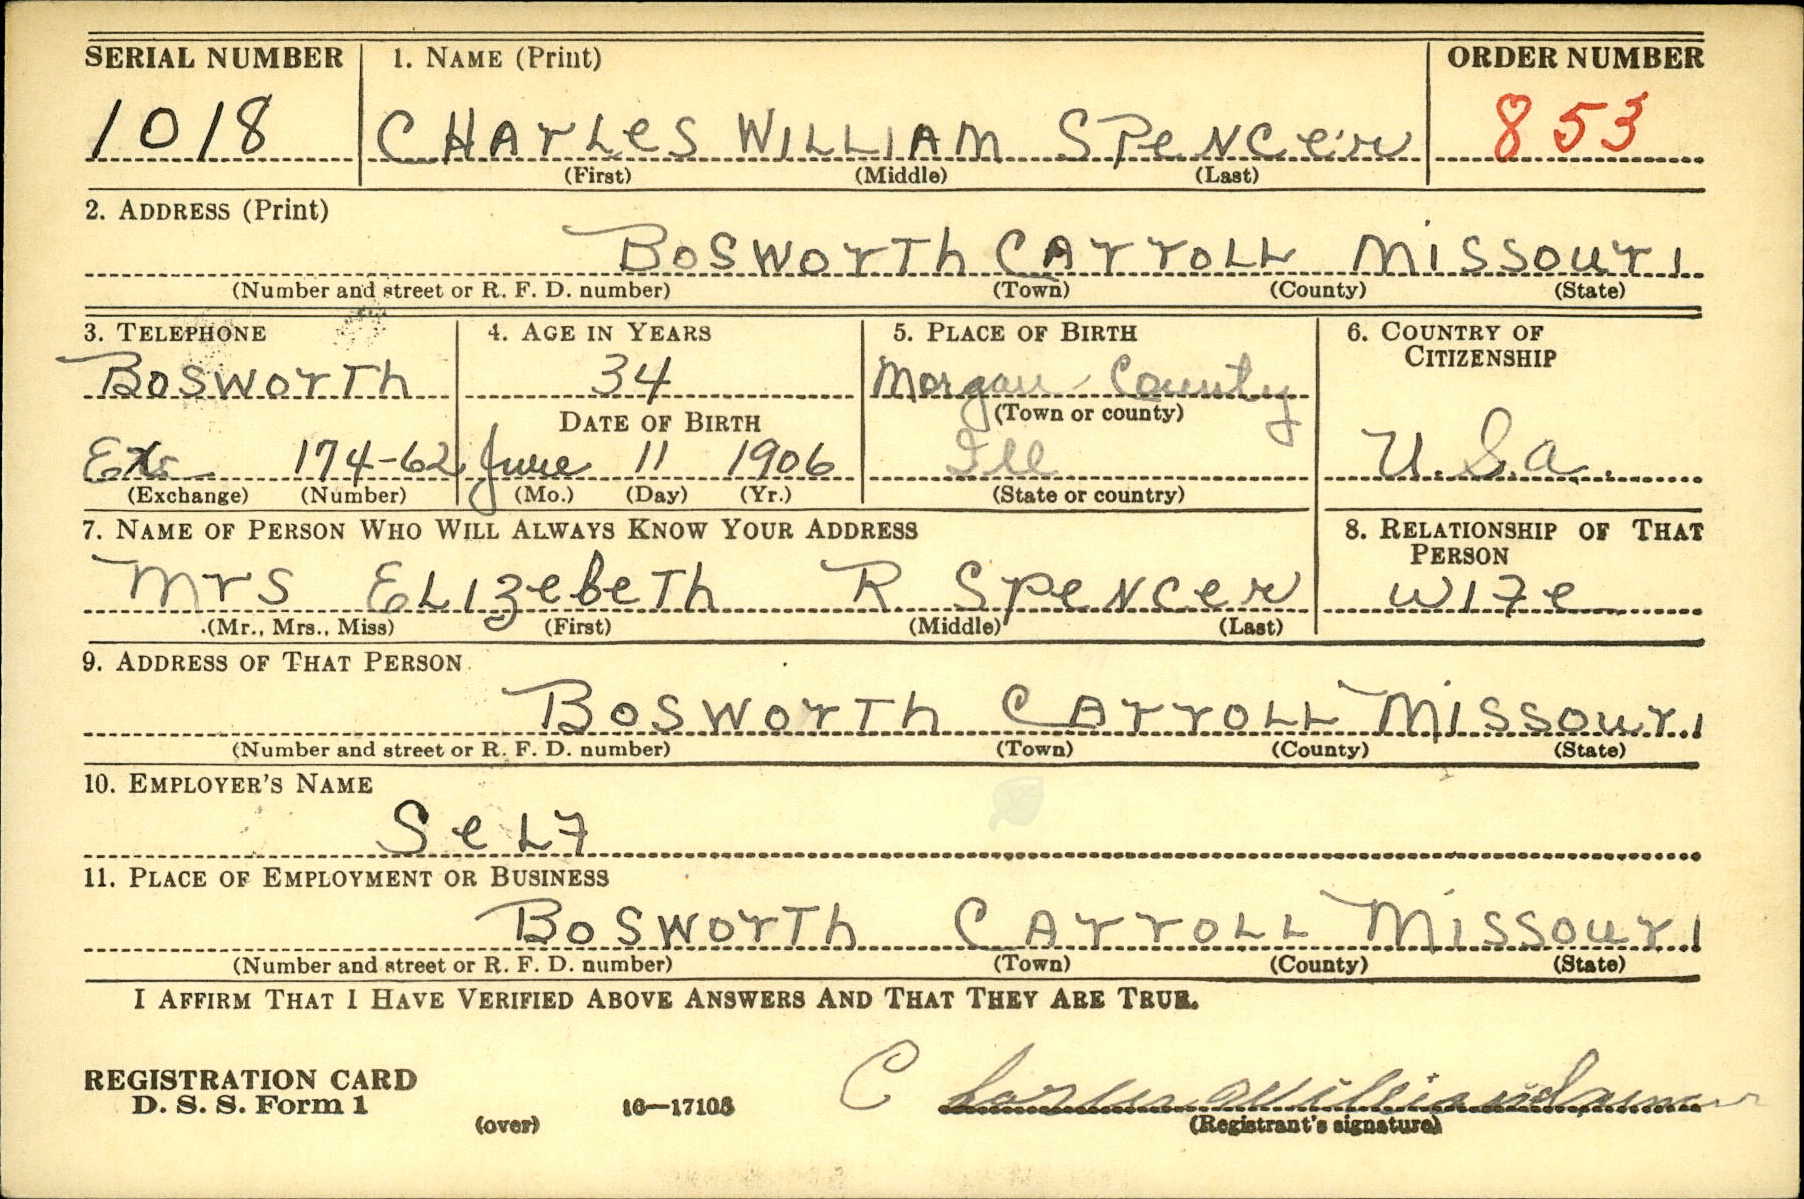 SERIAL NUMBER 1. NAME (Print) ORDER NUMBER
1018 CHArLeS WILLIAM SPeNCer 853
(First) (Middle) (Last)
2. ADDRESS (Print)
BoSWorTh CArroLL MISSourI
(Number and street or R. F. D. number) (Town) (County) (State)
3. TELEPHONE 4. AGE IN YEARS 5. PLACE OF BIRTH 6. COUNTRY OF CITIZENSHIP
BoSWorTh 34 Morgan County
DATE OF BIRTH (Town or county)
Ex. 174-62 June 11 1906 Ill U.S.a.
(Exchange) (Number) (Mo.) (Day) (Yr.) (State or country)
7. NAME OF PERSON WHO WILL ALWAYS KNOW YOUR ADDRESS 8. RELATIONSHIP OF THAT PERSON
MrS ELIzebeTh R SPeNCer WIFe
(Mr., Mrs., Miss) (First) (Middle) (Last)
9. ADDRESS OF THAT PERSON
BoSWorTh CArroLL MISSourI
(Number and street or R. F. D. number) (Town) (County) (State)
10. EMPLOYER'S NAME
SeLF
11. PLACE OF EMPLOYMENT OR BUSINESS
BoSWorTh CArroLL MISSourI
(Number and street or R. F. D. number) (Town) (County) (State)
I AFFIRM THAT I HAVE VERIFIED ABOVE ANSWERS AND THAT THEY ARE TRUE.
REGISTRATION CARD
D. S. S. Form 1 (over) 16—17105 Charles William Spencer
(Registrant's signature)